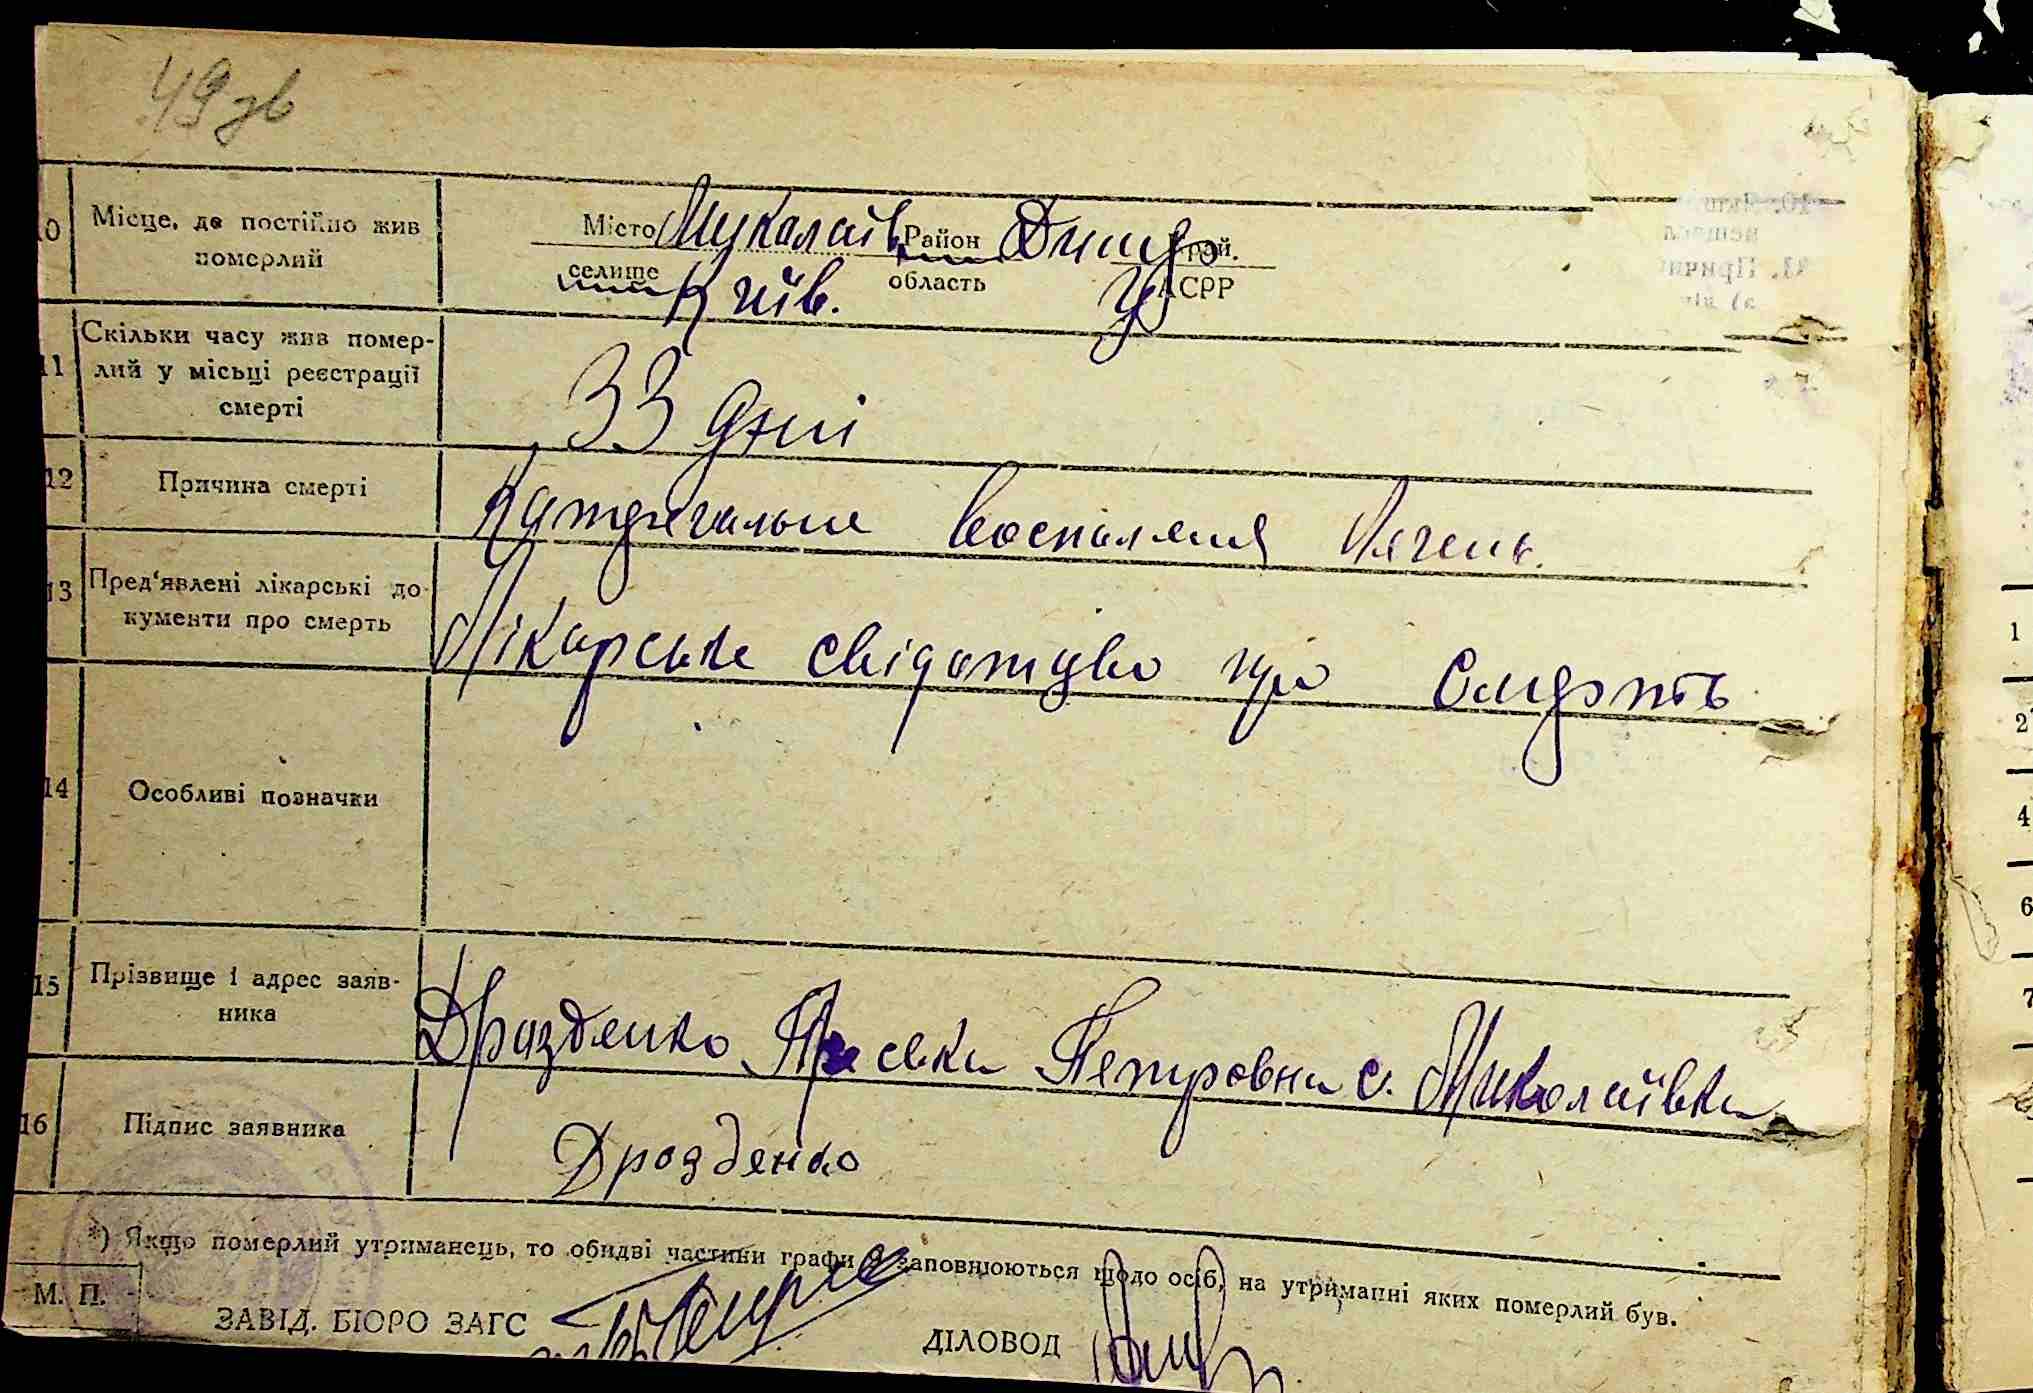 49 зв
10 Місце, де постійно жив Місто Миколаїв Район
померлий селище Київ. область У АСРР
11 Скільки часу жив помер-
лий у місьці реєстрації 33 дні
смерті
12 Причина смерті Катаральне воспаленя Лягень.
13 Пред'явлені лікарські до-
кументи про смерть Лікарське свідотцво про смерть
14 Особливі позначки
15 Прізвище і адрес заяв- Дразденко Петровна с. Миколаївка
ника
16 Підпис заявника Дрозденко
*) Якщо померлий утриманець, то обидві частини графи 9 заповнюються щодо осіб, на утриманні яких померлий був.
М. П.
ЗАВІД. БЮРО ЗАГС
ДІЛОВОД
1
2
4
6
7